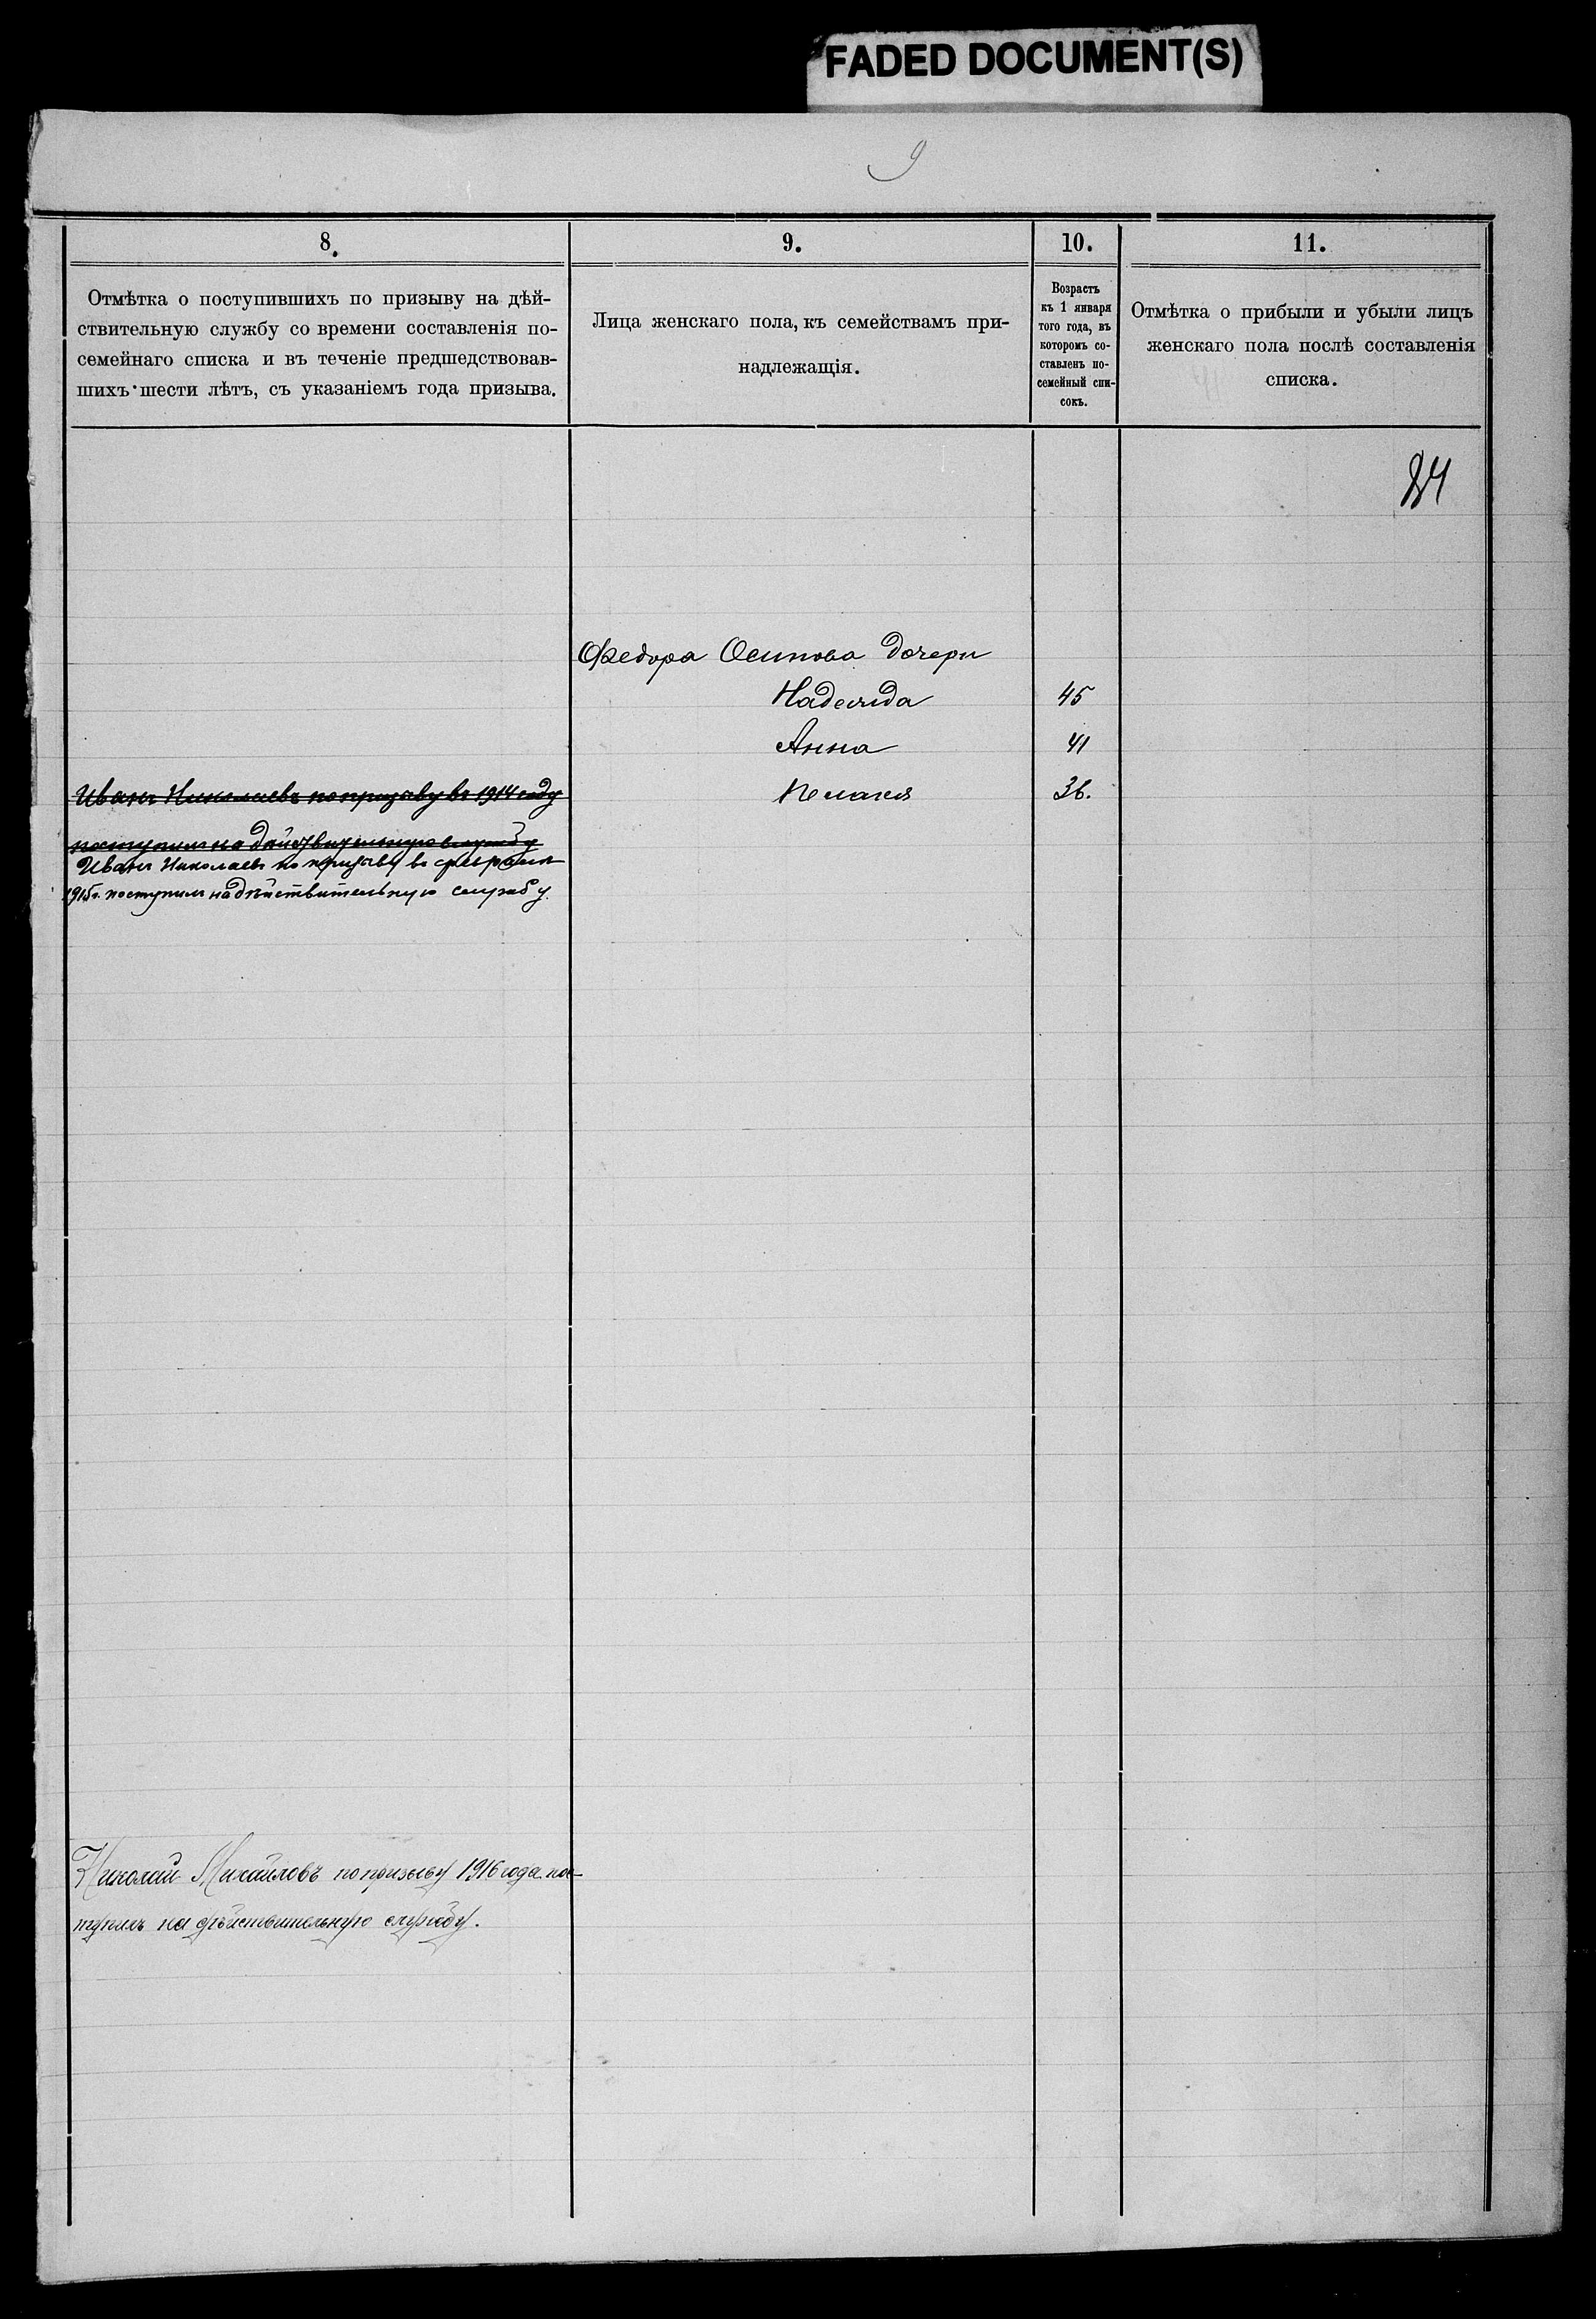 FADED DOCUMENT(S)
9
8.
9.
10.
11.
Отмѣтка о поступившихъ по призыву на дѣй-
ствительную службу со времени составленія по-
семейнаго списка и въ теченіе предшедствовав-
шихъ шести лѣтъ, съ указаніемъ года призыва.
Лица женскаго пола, къ семействамъ при-
надлежащія.
Возрастъ
къ 1 января
того года, въ
которомъ со-
ставленъ по-
семейный спи-
сокъ.
Отмѣтка о прибыли и убыли лицъ
женскаго пола послѣ составленія
списка.
24
Федора Осипова дочери
Надежда 45
Анна 41
Иванъ Николаевъ по призыву въ 1914 году
Пелагея 36.
поступилъ на дѣйствительную службу
Иванъ Николаевъ по призыву въ февралѣ
1915 г. поступилъ на дѣйствительную службу.
Николай Михайловъ по призыву 1916 года пос-
тупилъ на дѣйствительную службу.